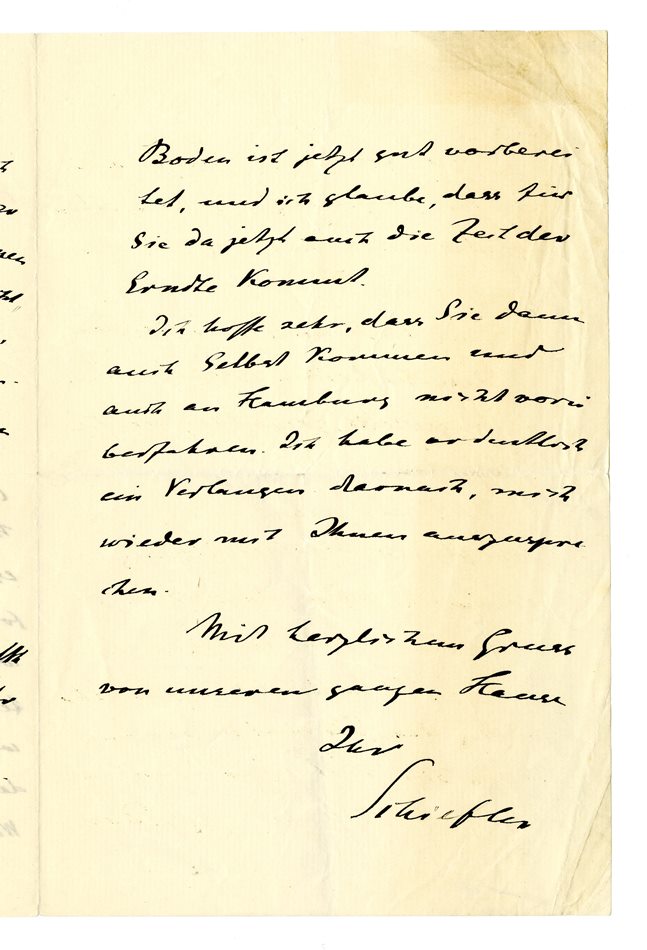 Boden ist jetzt gut vorberei
tet, und ich glaube, dass für
Sie da jetzt auch die Zeit der
Erndte kommt.
Ich hoffe sehr, dass Sie dann
auch Selbst kommen und
auch an Hamburg nicht vorü
berfahren. Ich habe ordentlich
ein Verlangen darnach, mich
wieder mit Ihnen auszuspre
chen.
Mit herzlichem Gruss
von unserem ganzen Hause
Ihr
Schiefler